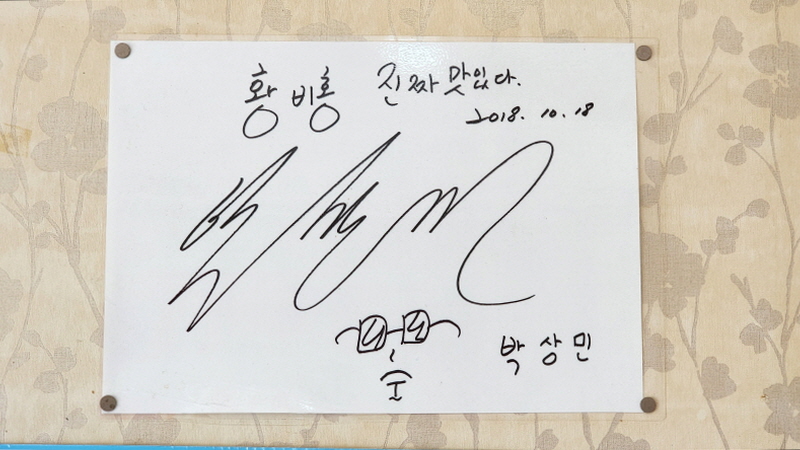 황비홍 진짜 맛있다.
2018. 10. 18
박상민